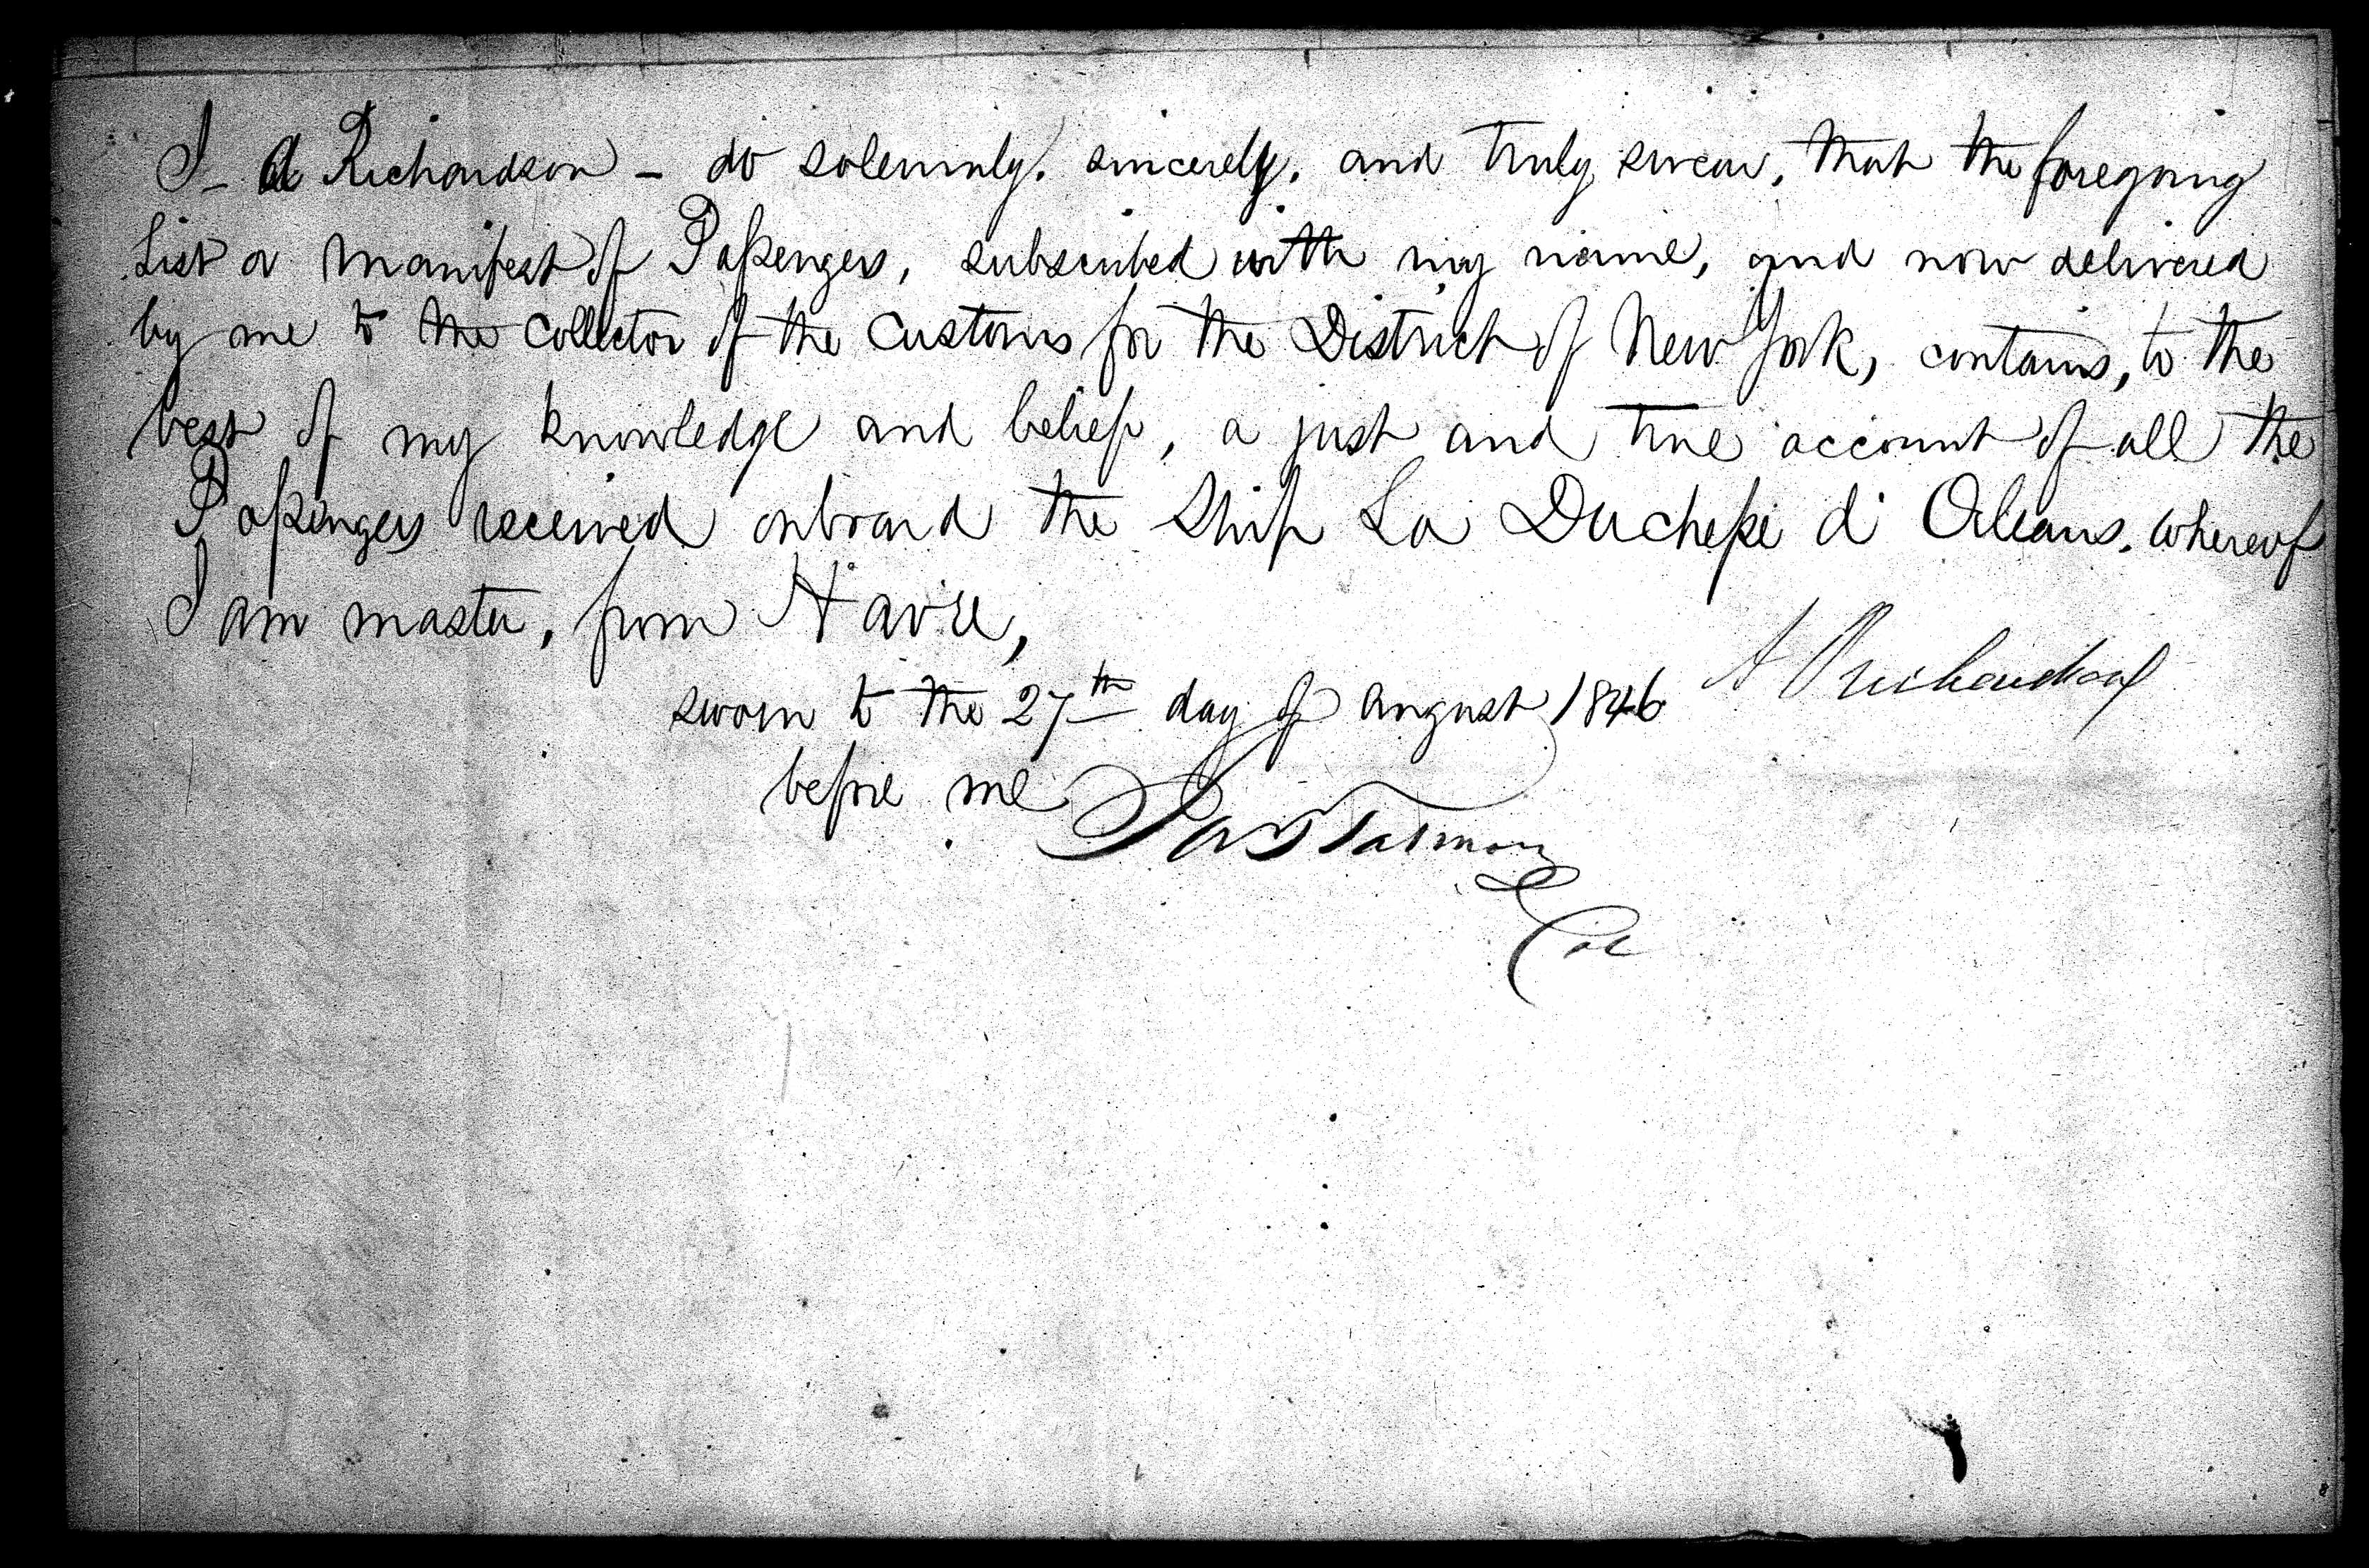 I - A Richardson - do solemnly, sincerely, and truly swear, that the foregoing
List or Manifest of Passengers, subscribed with my name, and now delivered
by me to the Collector of the Customs for the District of New York, contains, to the
best of my knowledge and belief, a just and true account of all the
Passengers received onboard the Ship La Duchesse d' Orleans. whereof
I am master, from Havre,
A Richardson
sworn to the 27th day of August 1846
before me
Col